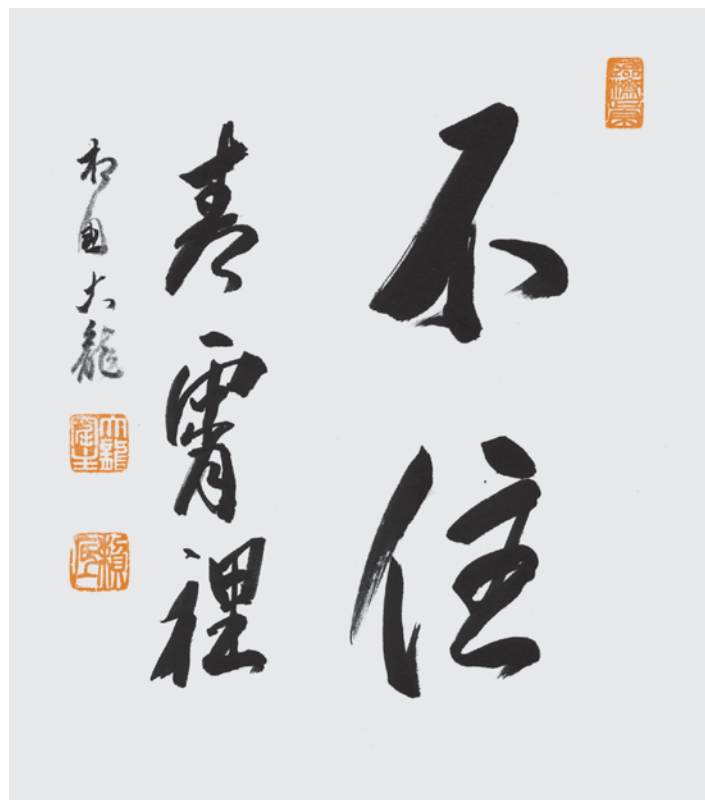 不住
青霄裡
相国大龍